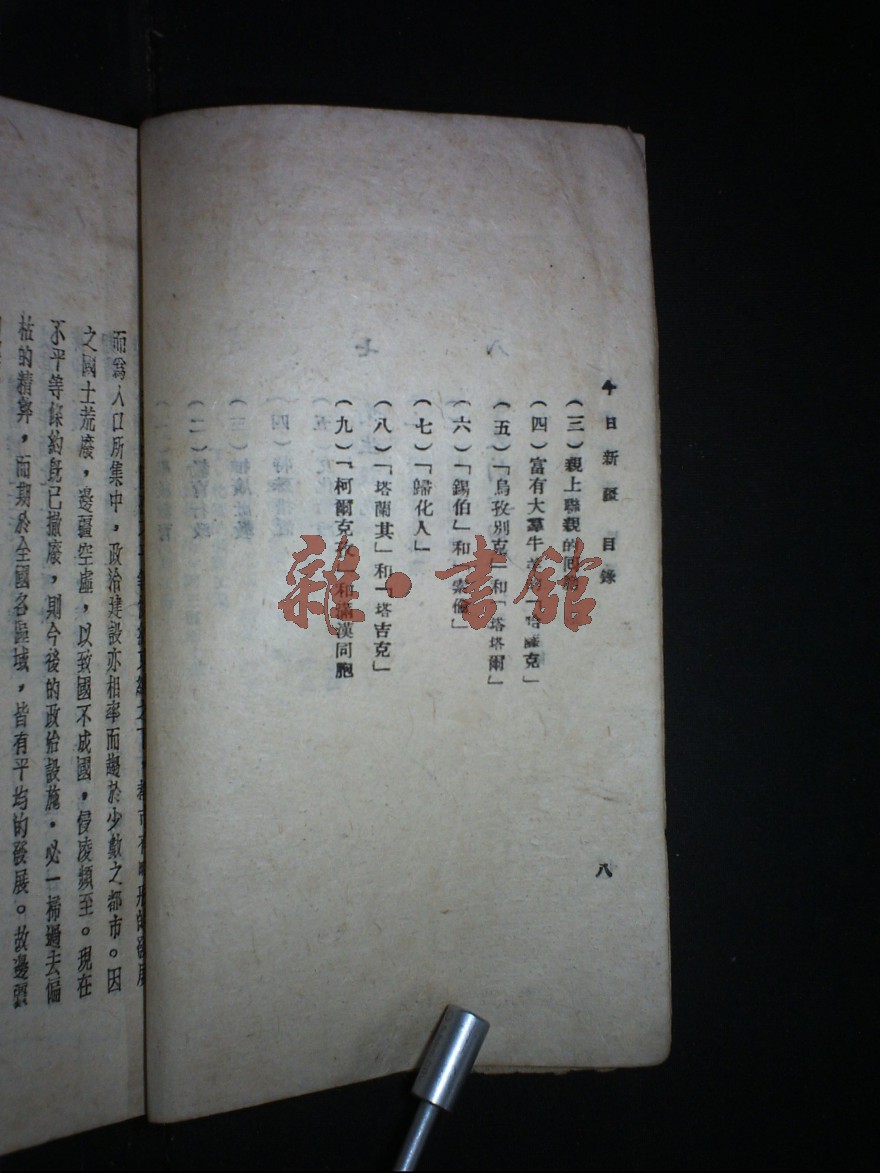 今日新疆　目錄
八
（三）親上聯親的回約
（四）富有大羣牛羊的「哈薩克」
（五）「烏孜別克」和「塔塔爾」
（六）「錫伯」和「索倫」
（七）「歸化人」
（八）「塔蘭其」和「塔吉克」
（九）「柯爾克孜」和滿漢同胞
雜·書館
而爲人口所集中，政治建設亦相率而趨於少數之都市。因
之國土荒廢，邊疆空虛，以致國不成國，侵凌頻至。現在
不平等條約既已撤廢，則今後的政治設施，必一掃過去偏
枯的精弊，而期於全國各區域，皆有平均的發展。故邊疆